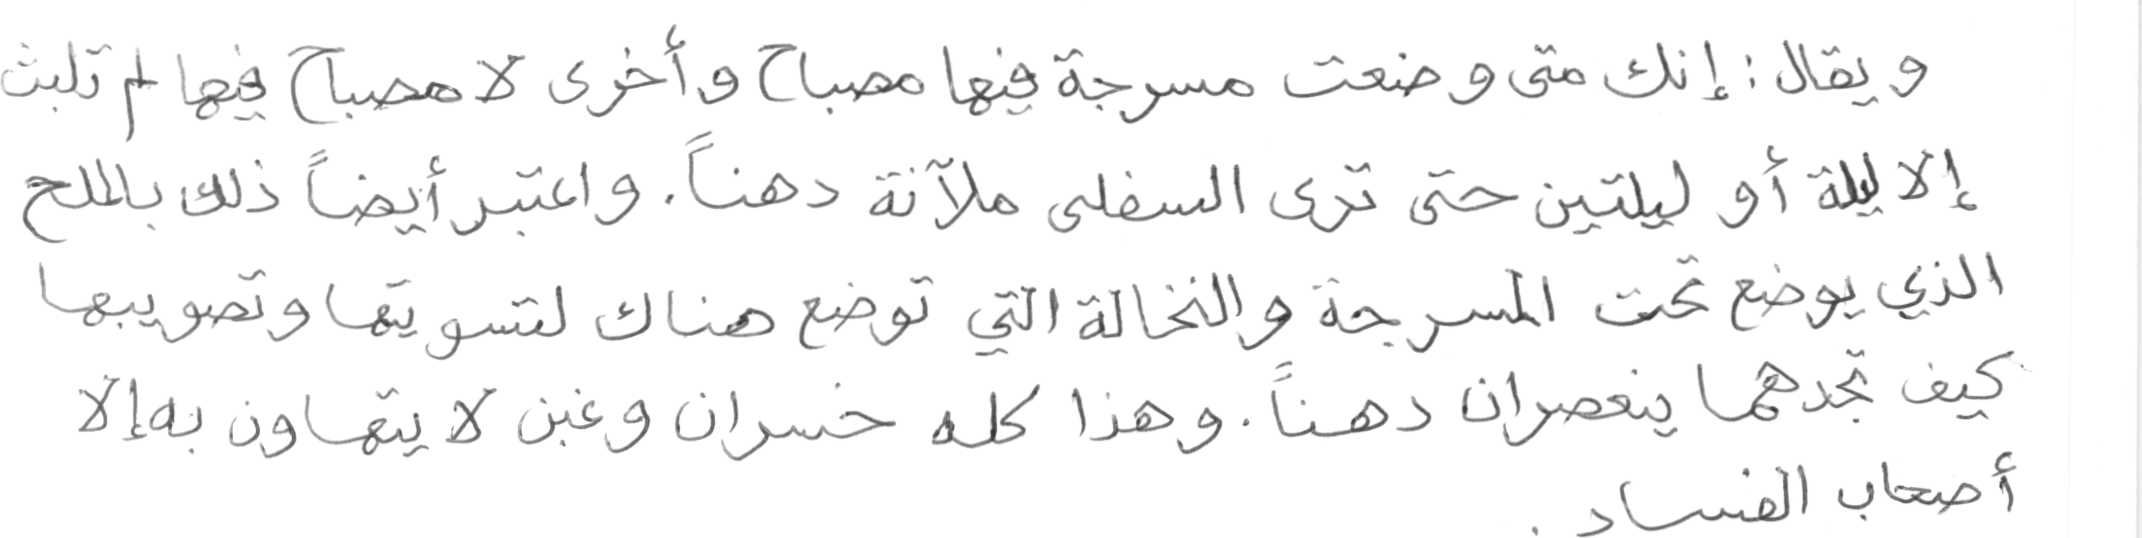 ويقال: إنك متى وضعت مسرجة فيها مصباح وأخرى لا مصباح فيها لم تلبث
إلا ليلة أو ليلتين حتى ترى السفلى ملآنة دهناً. واعتبر أيضاً ذلك بالملح
الذي يوضع تحت المسرجة والنخالة التي توضع هناك لتسويتها وتصويبها
كيف تجدهما ينعصران دهناً. وهذا كله خسران وغبن لا يتهاون به إلا
أصحاب الفساد.